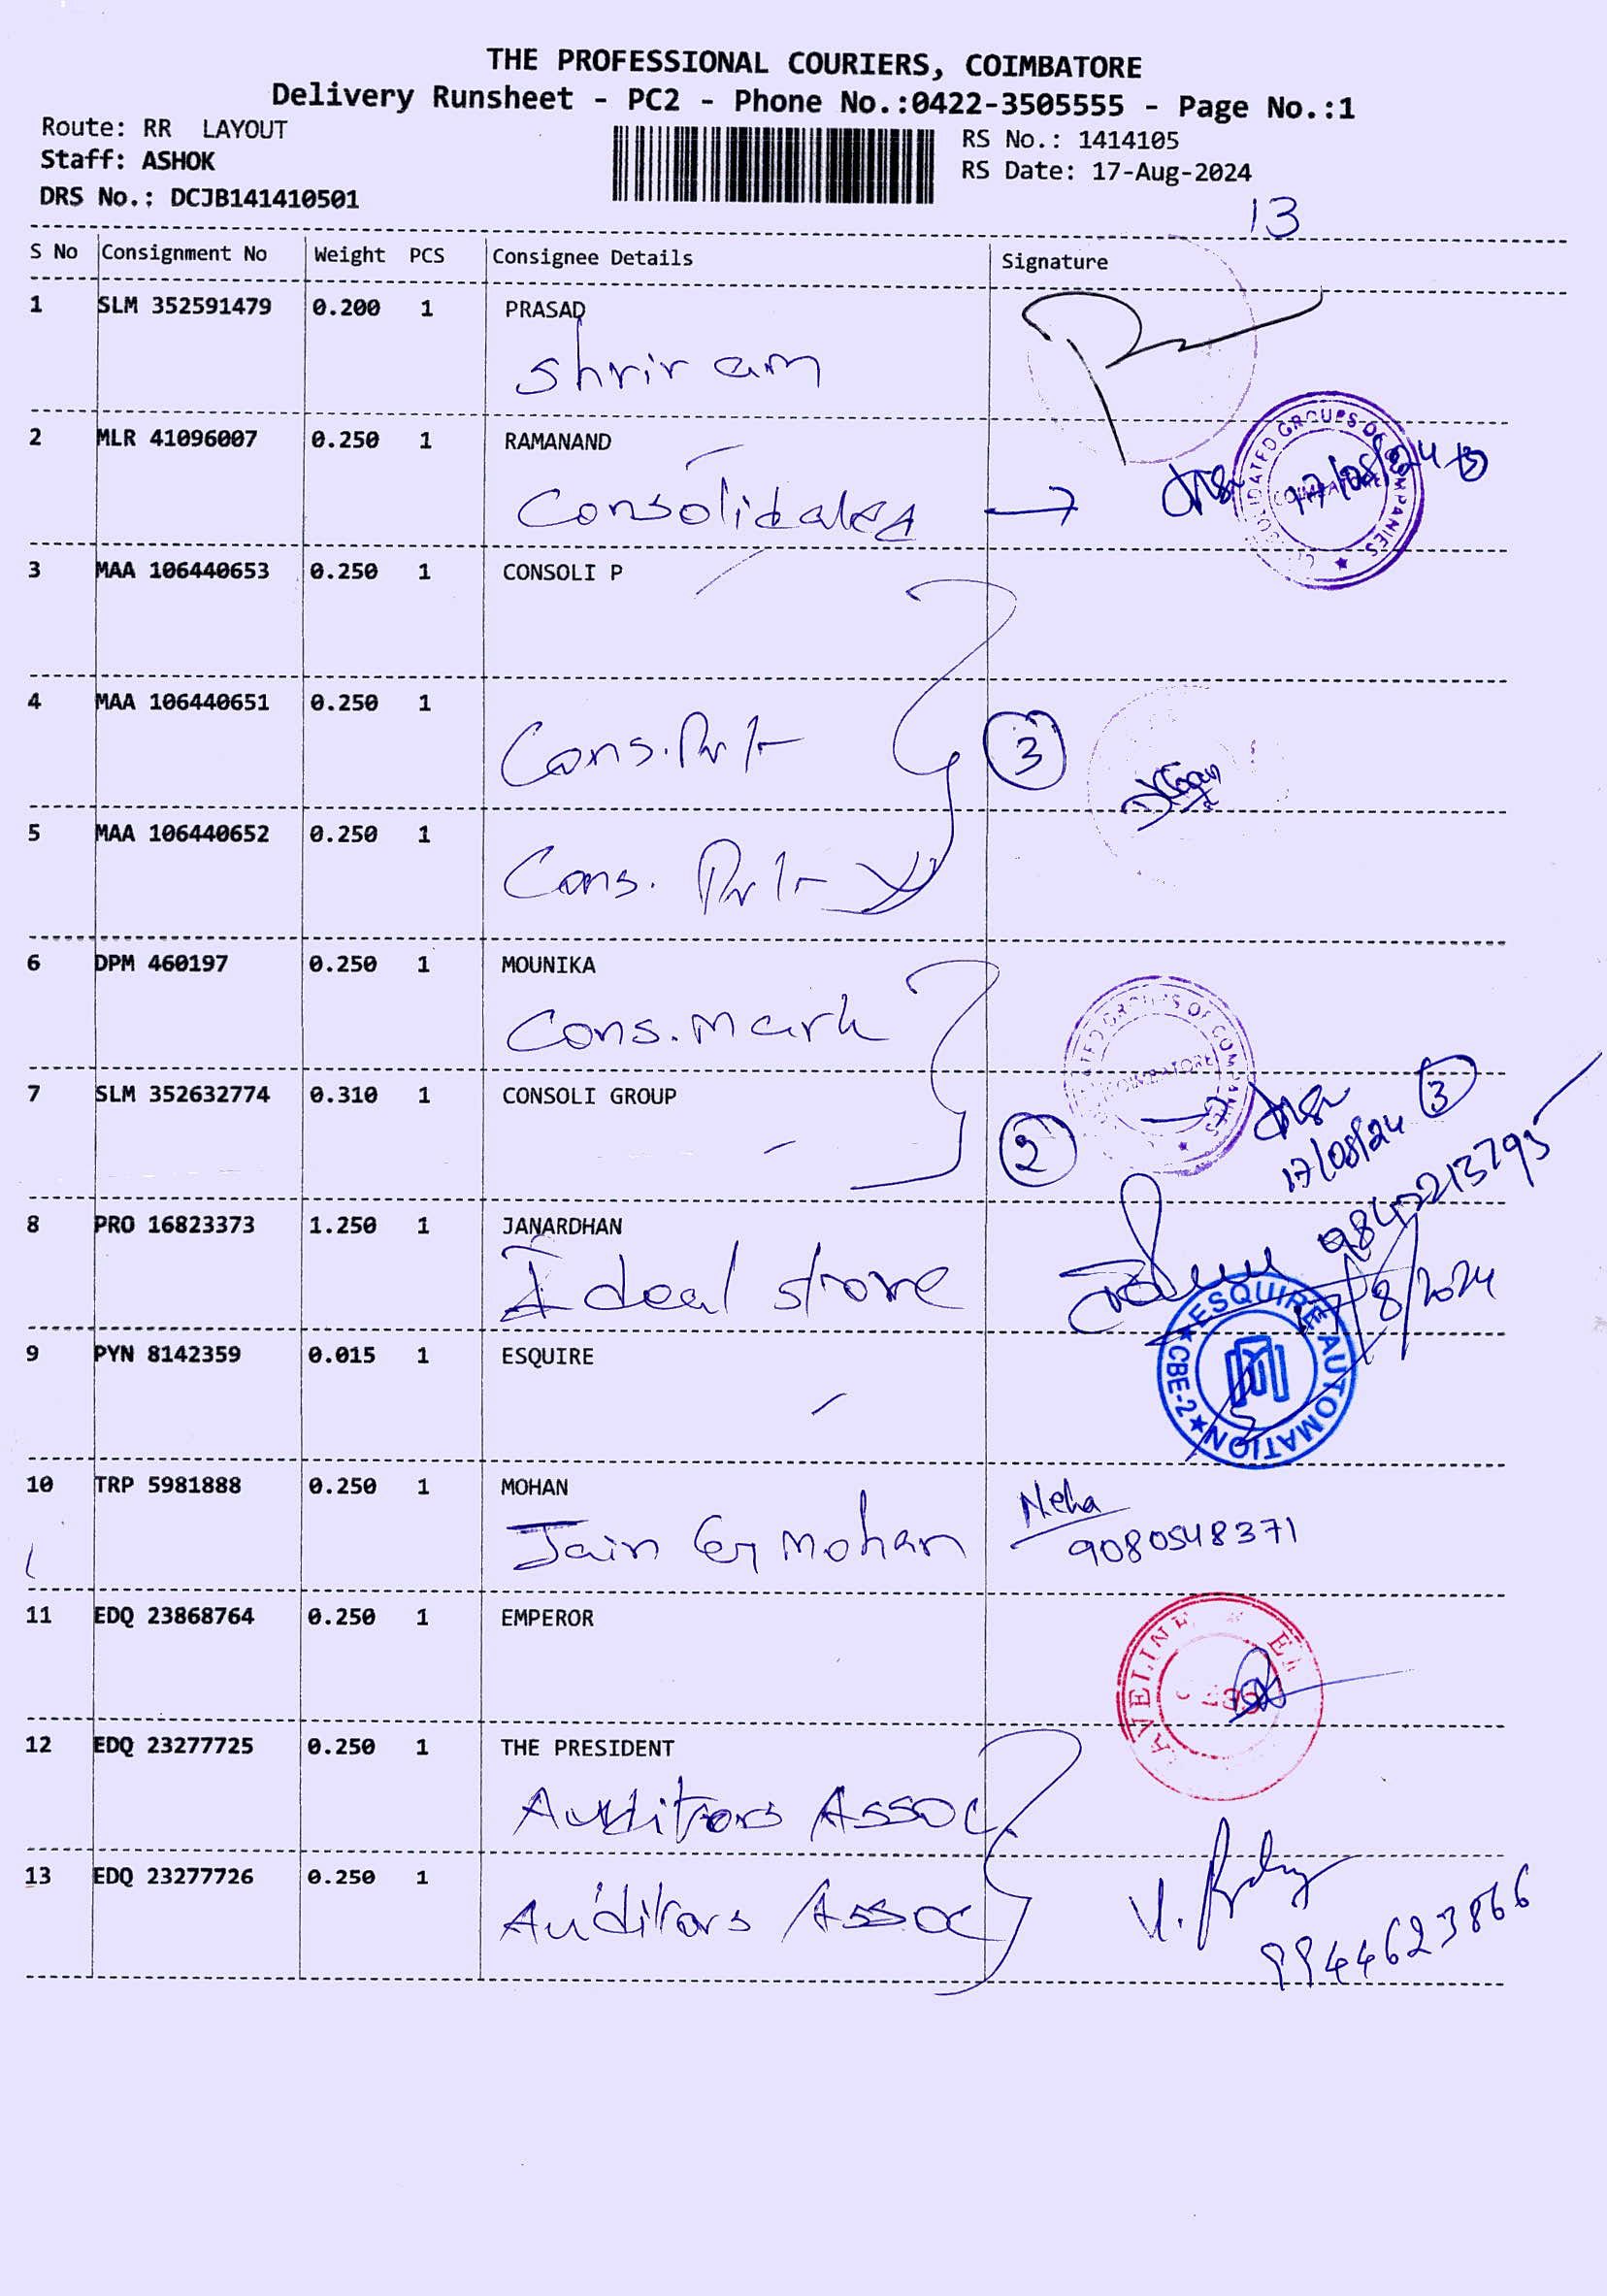 THE PROFESSIONAL COURIERS, COIMBATORE
Delivery Runsheet - PC2 - Phone No.:0422-3505555 - Page No.:1
Route: RR LAYOUT
Staff: ASHOK
DRS No.: DCJB141410501
RS No.: 1414105
RS Date: 17-Aug-2024
13
S No Consignment No Weight PCS Consignee Details Signature
1 SLM 352591479 0.200 1 PRASAD
Shriram
2 MLR 41096007 0.250 1 RAMANAND
Consolidated
17/08/24
GROUPS OF COMPANIES
3 MAA 106440653 0.250 1 CONSOLI P
4 MAA 106440651 0.250 1
Cons.
3
5 MAA 106440652 0.250 1
Cons.
6 DPM 460197 0.250 1 MOUNIKA
Cons.mark
GROUPS OF COMPANIES
COIMBATORE
7 SLM 352632774 0.310 1 CONSOLI GROUP
2
3
17/08/24
8 PRO 16823373 1.250 1 JANARDHAN
Ideal store
/8/2024
9 PYN 8142359 0.015 1 ESQUIRE
ESQUIRE AUTOMATION
CBE-2
10 TRP 5981888 0.250 1 MOHAN
Jain Mohan
Neha
9080548371
11 EDQ 23868764 0.250 1 EMPEROR
12 EDQ 23277725 0.250 1 THE PRESIDENT
Auditors Assoc
13 EDQ 23277726 0.250 1
Auditors Assoc
V.
9944623866